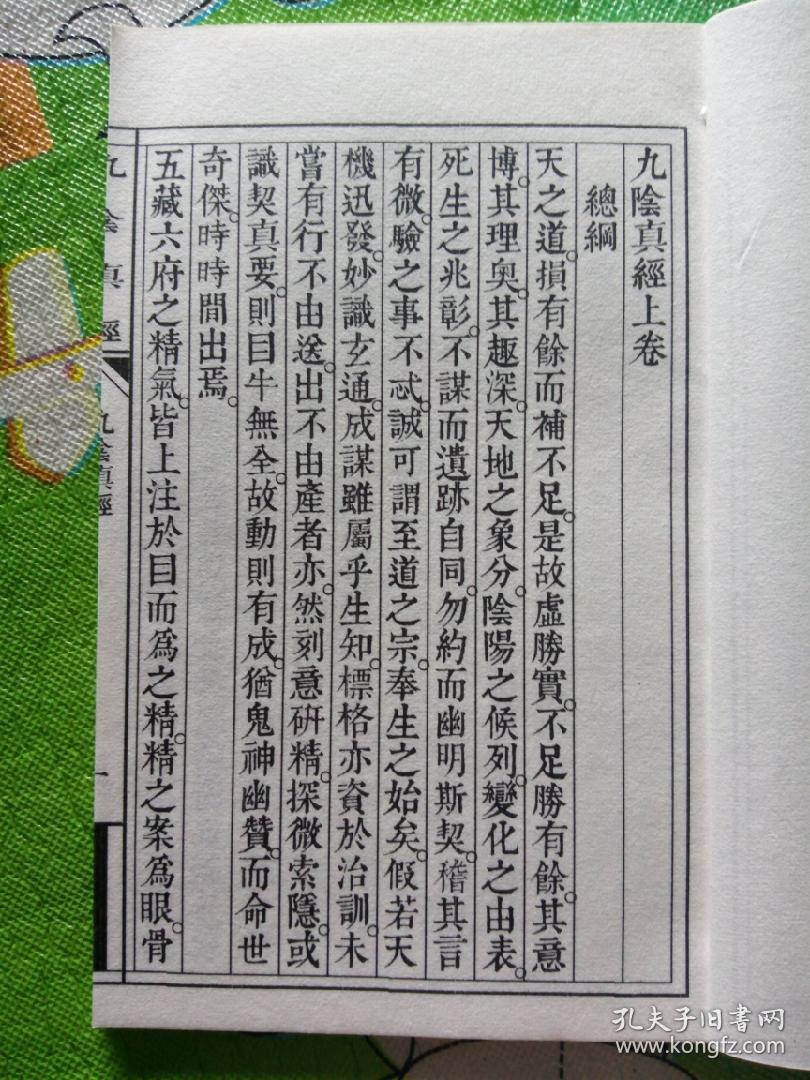 九陰真經上卷
總綱
天之道。損有餘而補不足。是故虛勝實。不足勝有餘。其意
博。其理奧。其趣深。天地之象分。陰陽之候列。變化之由表。
死生之兆彰。不謀而遺跡自同。勿約而幽明斯契。稽其言
有微。驗之事不忒。誠可謂至道之宗。奉生之始矣。假若天
機迅發。妙識玄通。成謀雖屬乎生知。標格亦資於治訓。未
嘗有行不由送。出不由產者亦。然刻意研精。探微索隱。或
識契真要。則目牛無全。故動則有成。猶鬼神幽贊。而命世
奇傑。時時間出焉。
五藏六府之精氣。皆上注於目而爲之精。精之案爲眼。骨
九陰真經
九陰真經
一
孔夫子旧书网
www.kongfz.com